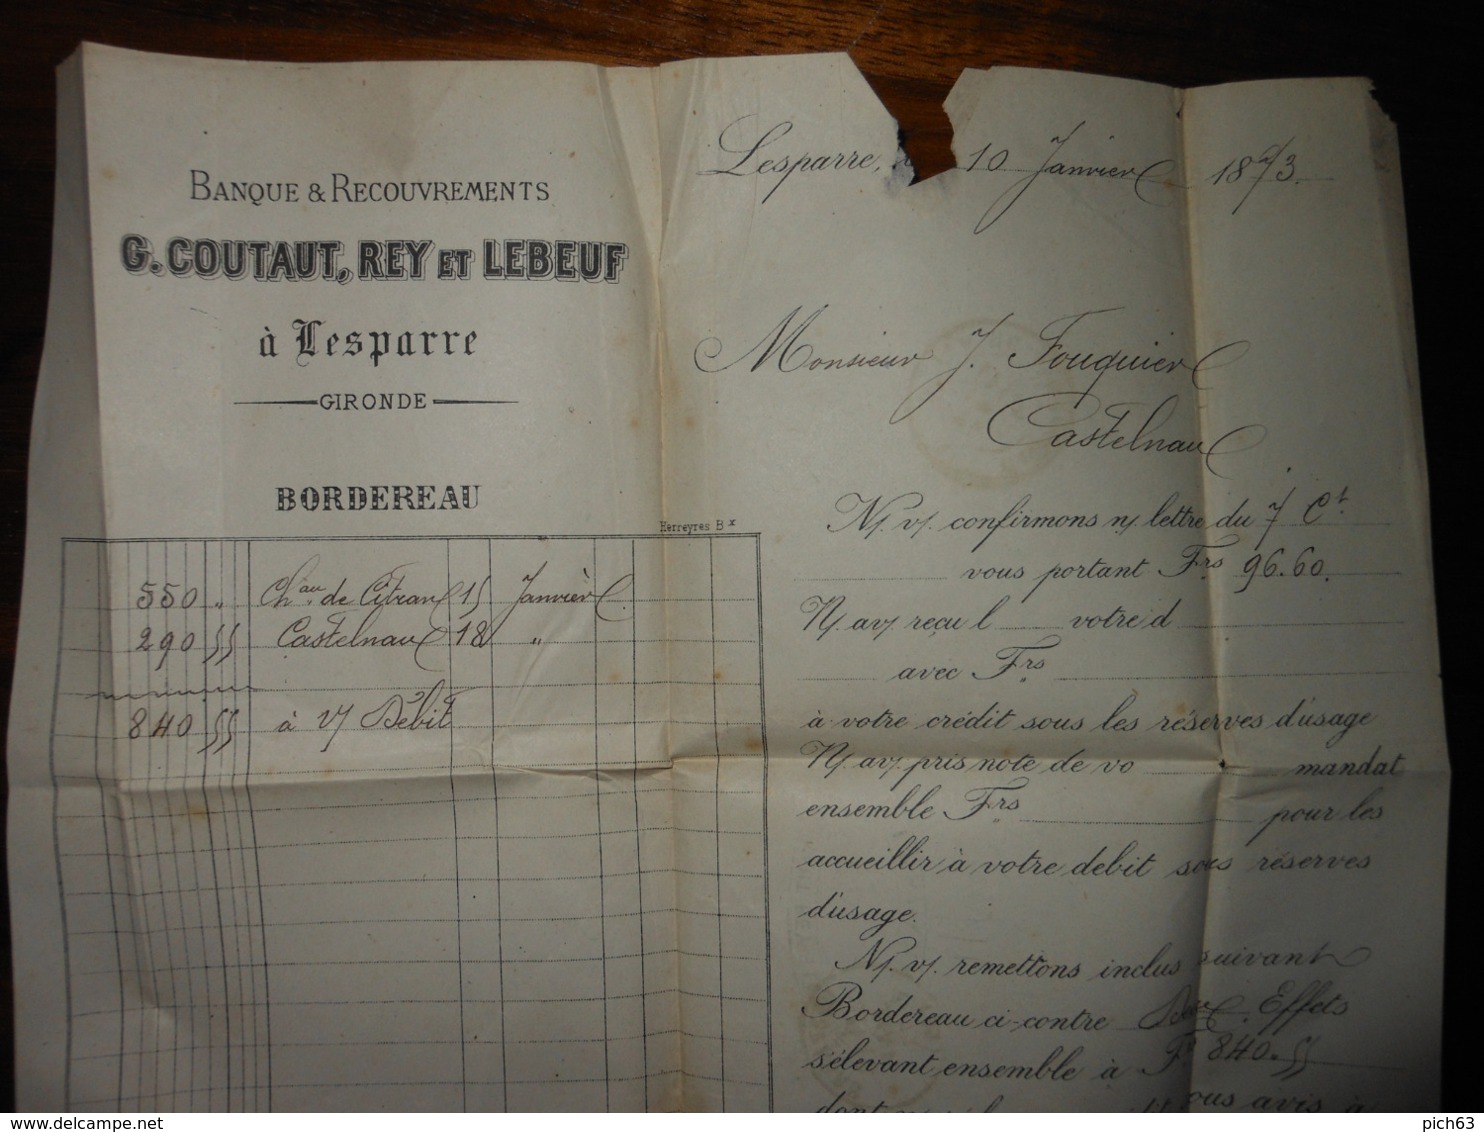 Lesparre, 10 Janvier 1873.
BANQUE & RECOUVREMENTS
G. COUTAUT, REY ET LEBEUF
à Lesparre
GIRONDE
BORDEREAU
Herreyres Bx
550 " Chau de Citran 15 Janvier
290 55 Castelnau 18 "
840 55 à V/ Débit
Monsieur J. Fouquier
Castelnau
N/. v/. confirmons n/ lettre du 7 Ct.
vous portant Frs 96.60.
N/. av/. reçu l votre d
avec Frs
à votre crédit sous les réserves d'usage
N/. av/. pris note de vo mandat
ensemble Frs pour les
accueillir à votre debit sous réserves
d'usage.
N/. v/. remettons inclus suivant
Bordereau ci-contre Deux Effets
s'élevant ensemble à F. 840.55
dont vous avis à
delcampe.net
pich63